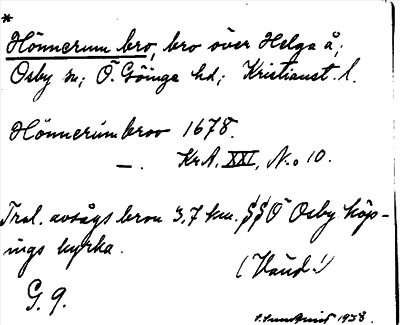 *
Hönnerum bro, bro över Helga å,
Osby sn; Ö. Göinge hd; Kristianst. l.
Hönnerúmbroo 1678.
—. Kr.A. XXI, N:o 10.
Trol. avsågs bron 3,7 km. SSÖ Osby köp-
ings kyrka.
(Vänd!)
G. 9.
1938.